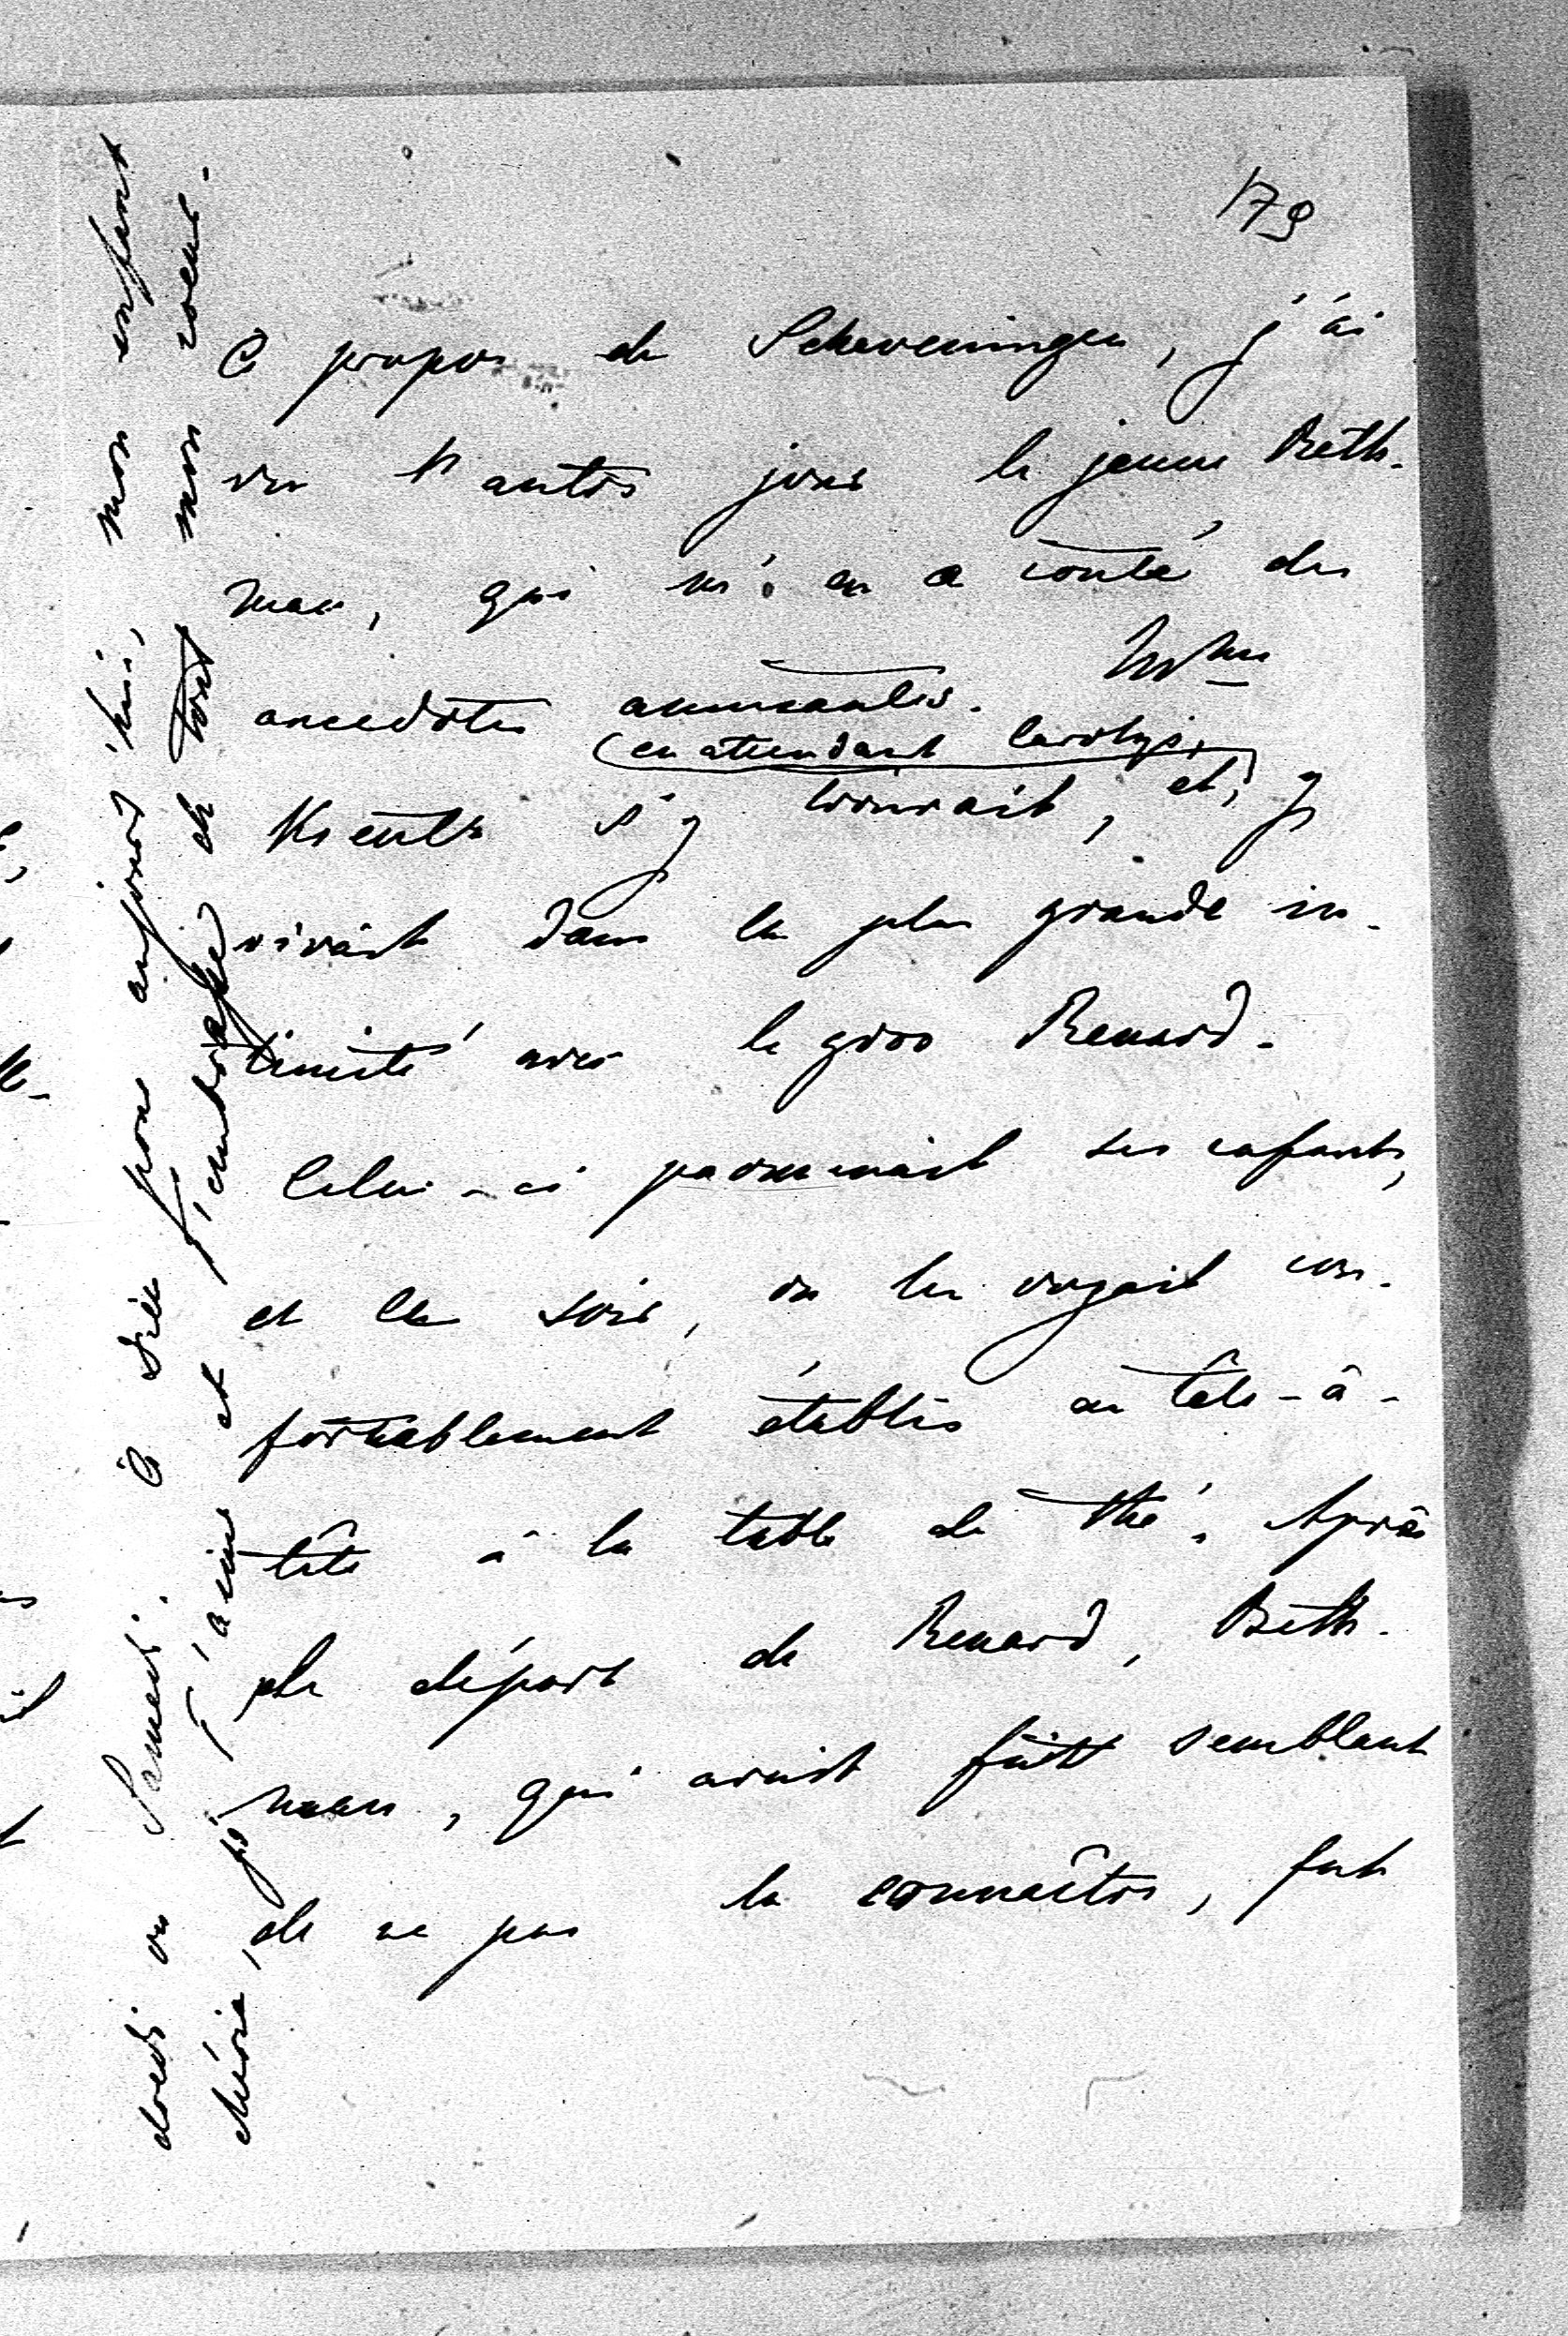 179
A propos de Scheveningen, j'ai
vu l'autre jour le jeune Beth-
man, qui m'en a conté des
anecdotes amusantes. Mme
(en attendant Carolyi,)
s'y trouvait, et, y
vivait dans la plus grande in-
timité avec le gros Renard.
Celui-ci promenait ses enfants,
et le soir, on les voyait con-
fortablement établis en tête-à-
tête à la table de thé. Après
le départ de Renard, Beth-
mann, qui avait fait semblant
de ne pas la connaître, fut
ou Samedi. A Dieu pour aujourd'hui, mon enfant
chérie, je t'aime et t'embrasse de tout mon coeur.